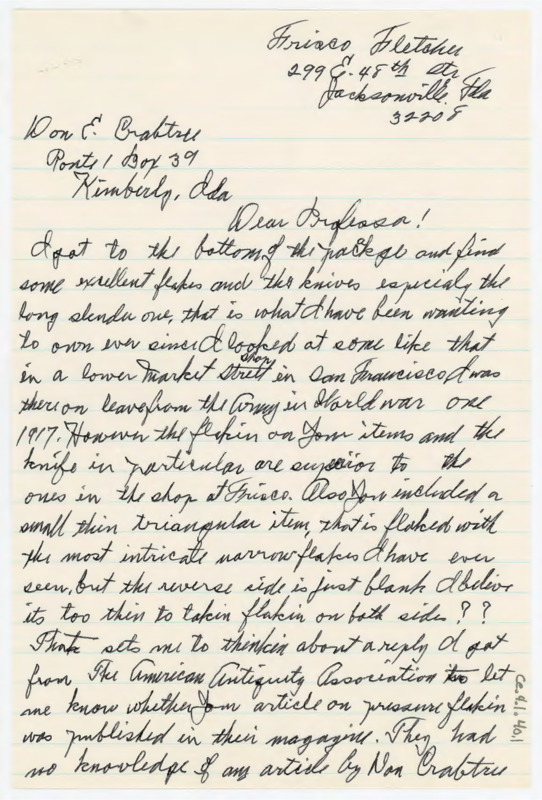 Frisco Fletcher
299 E. 48th Str
Jacksonville. Fla
32208
Don E. Crabtree
Route 1 Box 39
Kimberly, Ida
Dear Professor!
I got to the bottom of the package and find
some excellent flakes and the knives especialy the
long slender one, that is what I have been wanting
to own ever since I looked at some like that
in a lower Market Street shop in San Francisco I was
there on leave from the Army in World war one
1917. However the flakin on your items and the
knife in particular are superior to the
ones in the shop at Frisco. Also you included a
small thin triangular item, that is flaked with
the most intricate narrow flakes I have ever
seen, but the reverse side is just blank I belive
its too thin to takin flakin on both sides??
That sets me to thinkin about a reply I got
from The American Antiquity Association to let
me know whether your article on pressure flakin
was published in their magazine. They had
no knowledge of any article by Don Crabtree
Ce.4.1.40.1